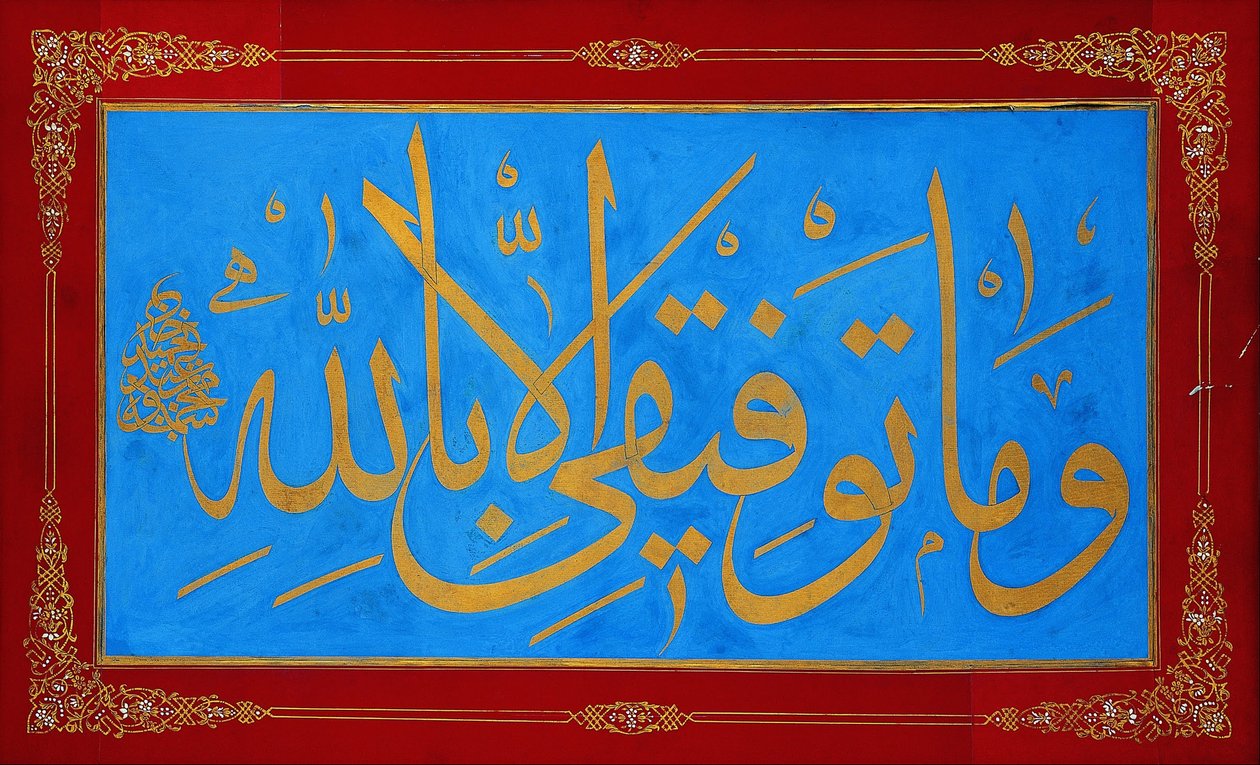 وَمَا تَوْفِيقِي إِلَّا بِاللّٰهِ